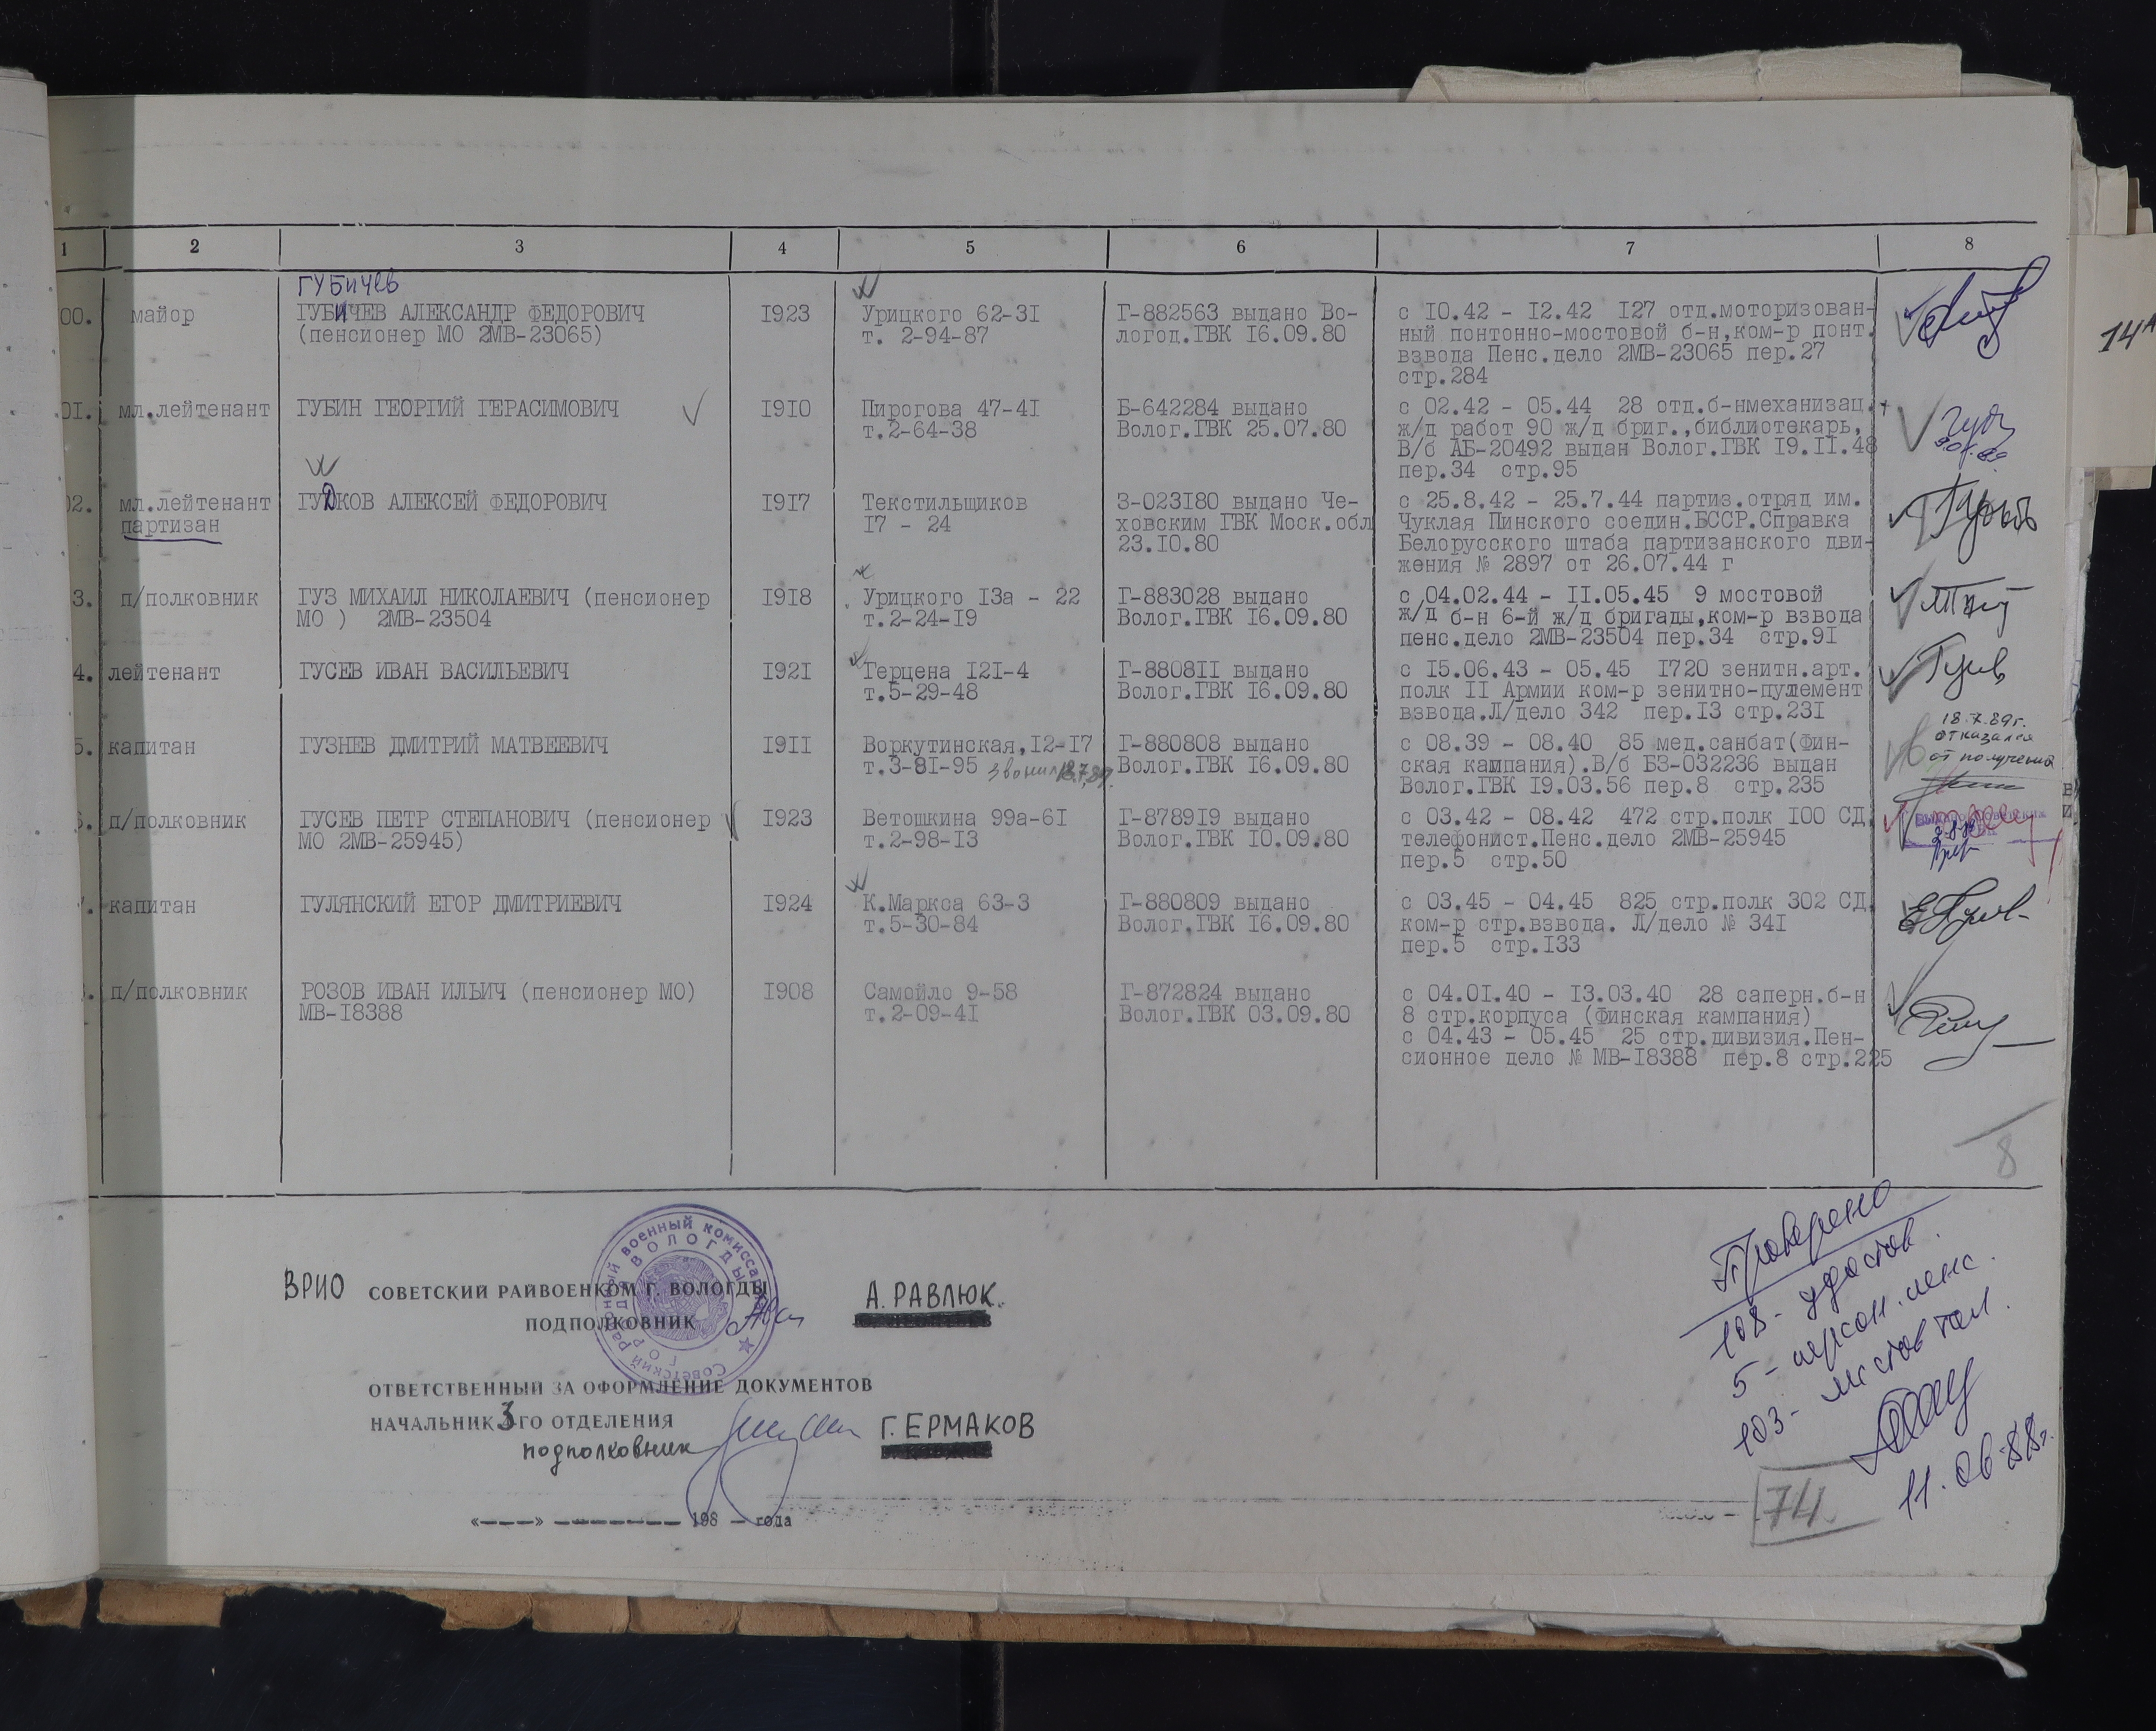 1 2 3 4 5 6 7 8
ГУБИЧЕВ
00. майор ГУБИЧЕВ АЛЕКСАНДР ФЕДОРОВИЧ I923 Урицкого 62-3I Г-882563 выдано Во- с I0.42 - I2.42 I27 отд.моторизован-
(пенсионер МО 2МВ-23065) т. 2-94-87 логод.ГВК I6.09.80 ный понтонно-мостовой б-н,ком-р понт.
взвода Пенс.дело 2МВ-23065 пер.27
стр.284
14А
0I. мл.лейтенант ГУБИН ГЕОРГИЙ ГЕРАСИМОВИЧ I9I0 Пирогова 47-4I Б-642284 выдано с 02.42 - 05.44 28 отд.б-нмеханизац.
т.2-64-38 Волог.ГВК 25.07.80 ж/д работ 90 ж/д бриг.,библиотекарь,
В/б АБ-20492 выдан Волог.ГВК I9.II.48
пер.34 стр.95
02. мл.лейтенант ГУДКОВ АЛЕКСЕЙ ФЕДОРОВИЧ I9I7 Текстильщиков З-023I80 выдано Че- с 25.8.42 - 25.7.44 партиз.отряд им.
партизан I7 - 24 ховским ГВК Моск.обл Чуклая Пинского соедин.БССР.Справка
23.I0.80 Белорусского штаба партизанского дви-
жения № 2897 от 26.07.44 г
3. п/полковник ГУЗ МИХАИЛ НИКОЛАЕВИЧ (пенсионер I9I8 Урицкого I3а - 22 Г-883028 выдано с 04.02.44 - II.05.45 9 мостовой
МО ) 2МВ-23504 т.2-24-I9 Волог.ГВК I6.09.80 ж/д б-н 6-й ж/д бригады,ком-р взвода
пенс.дело 2МВ-23504 пер.34 стр.9I
4. лейтенант ГУСЕВ ИВАН ВАСИЛЬЕВИЧ I92I Герцена I2I-4 Г-8808II выдано с I5.06.43 - 05.45 I720 зенитн.арт.
т.5-29-48 Волог.ГВК I6.09.80 полк II Армии ком-р зенитно-пулемент
взвода.Л/дело 342 пер.I3 стр.23I
18.7.89г.
отказался
от получения
5. капитан ГУЗНЕВ ДМИТРИЙ МАТВЕЕВИЧ I9II Воркутинская,I2-I7 Г-880808 выдано с 08.39 - 08.40 85 мед.санбат(Фин-
т.3-8I-95 звонил 18.7.89. Волог.ГВК I6.09.80 ская кампания).В/б БЗ-032236 выдан
Волог.ГВК I9.03.56 пер.8 стр.235
6. п/полковник ГУСЕВ ПЕТР СТЕПАНОВИЧ (пенсионер I923 Ветошкина 99а-6I Г-8789I9 выдано с 03.42 - 08.42 472 стр.полк I00 СД,
МО 2МВ-25945) т.2-98-I3 Волог.ГВК I0.09.80 телефонист.Пенс.дело 2МВ-25945
пер.5 стр.50
7. капитан ГУЛЯНСКИЙ ЕГОР ДМИТРИЕВИЧ I924 К.Маркса 63-3 Г-880809 выдано с 03.45 - 04.45 825 стр.полк 302 СД,
т.5-30-84 Волог.ГВК I6.09.80 ком-р стр.взвода. Л/дело № 34I
пер.5 стр.I33
п/полковник РОЗОВ ИВАН ИЛЬИЧ (пенсионер МО) I908 Самойло 9-58 Г-872824 выдано с 04.0I.40 - I3.03.40 28 саперн.б-н
МВ-I8388 т.2-09-4I Волог.ГВК 03.09.80 8 стр.корпуса (Финская кампания)
с 04.43 - 05.45 25 стр.дивизия.Пен-
сионное дело № МВ-I8388 пер.8 стр.225
8
ВРИО СОВЕТСКИЙ РАЙВОЕНКОМ Г. ВОЛОГДЫ А. РАВЛЮК.
ПОДПОЛКОВНИК
Советский районный военный комиссариат
города ВОЛОГДЫ
ОТВЕТСТВЕННЫЙ ЗА ОФОРМЛЕНИЕ ДОКУМЕНТОВ
НАЧАЛЬНИК 3-ГО ОТДЕЛЕНИЯ
подполковник Г. ЕРМАКОВ
«---» ------- 198 – года
Проверено
108 - удостов.
5 - персон. пенс.
103 - листов тал.
11.06.88г.
74